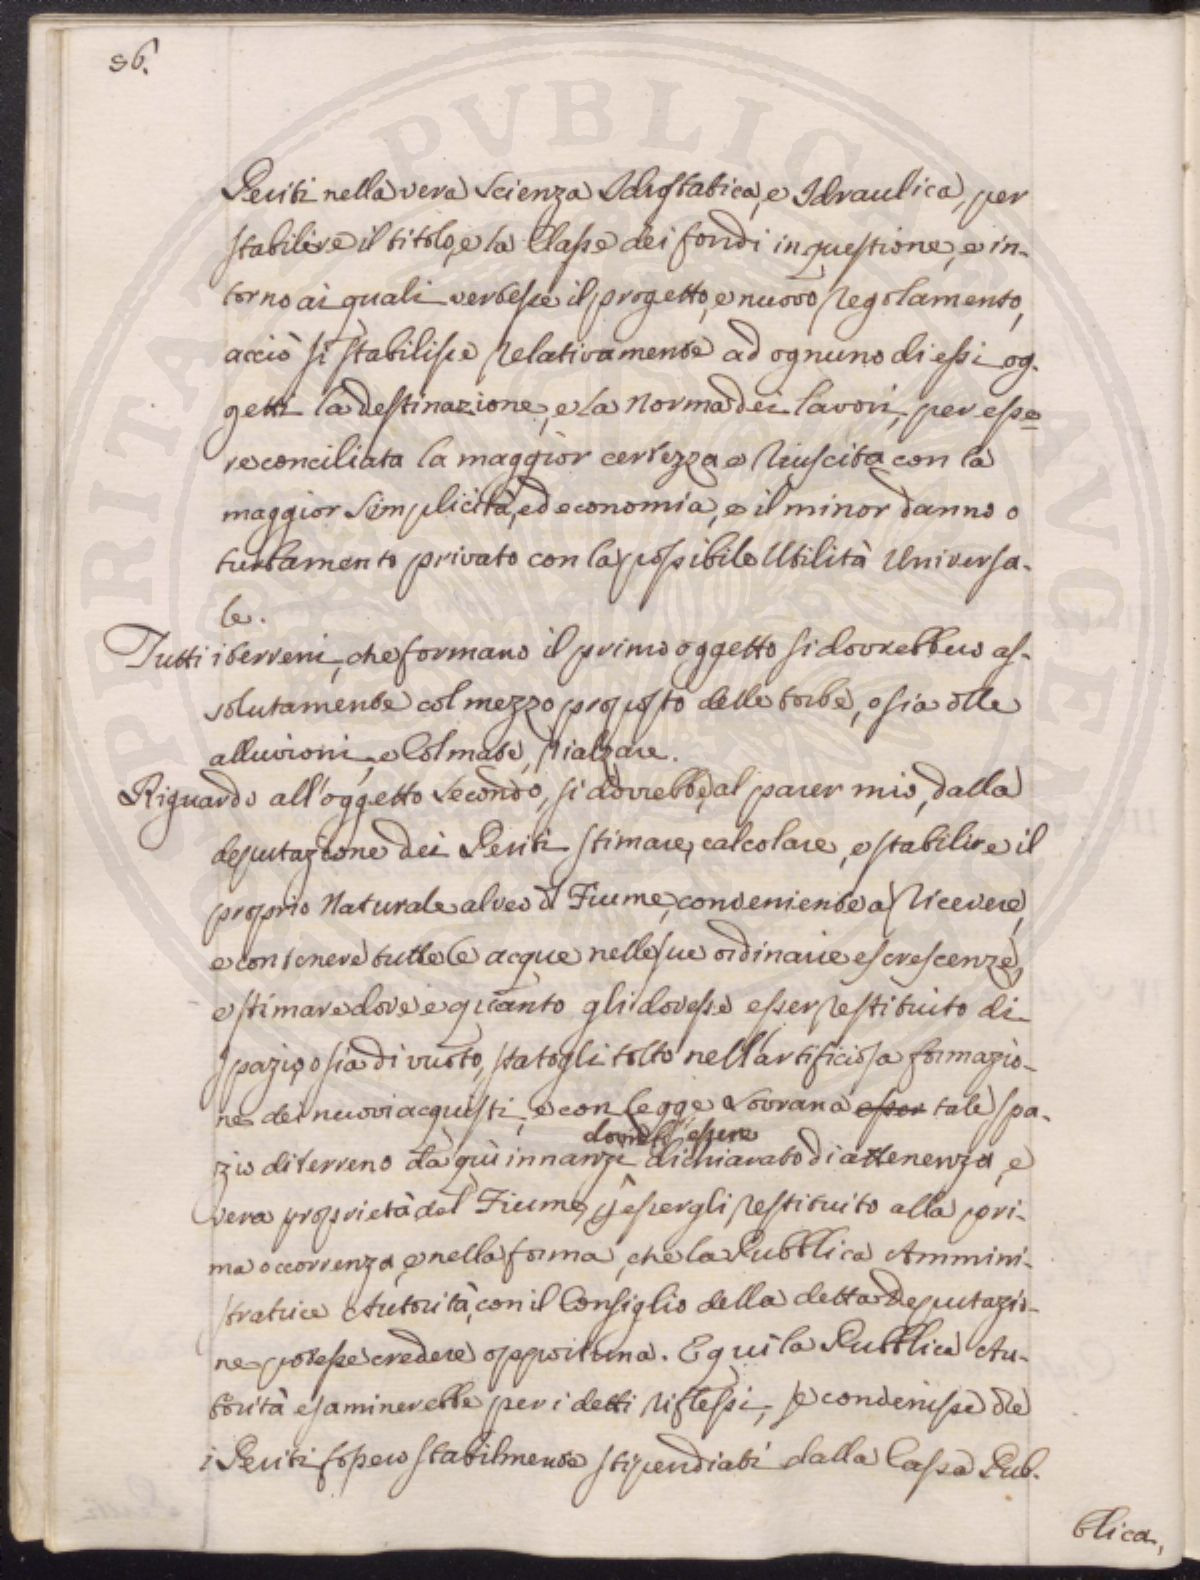 86.
Periti nella vera Scienza Idrostatica, e Idraulica, per
stabilire il titolo, e la Classe dei fondi in questione, e in-
torno ai quali vertesse il progetto, e nuovo Regolamento,
acciò si stabilisse relativamente ad ognuno di essi og-
getti la destinazione, e la Norma dei lavori, per esse-
re conciliata la maggior certezza e Riuscita con la
maggior Simplicità, ed economia, e il minor danno o
turbamento privato con la possibile Utilità Universa-
le.
Tutti i terreni, che formano il primo oggetto si dovrebbero as-
solutamente col mezzo proposto delle torbe, o sia dlle
alluvioni, e Colmate, Rialzare.
Riguardo all'oggetto Secondo, si dovrebbe, al parer mio, dalla
deputazione dei Periti stimare, calcolare, e stabilire il
proprio Naturale alveo d'l Fiume, conveniente a Ricevere,
e contenere tutte le acque nelle sue ordinarie escrescenze,
e stimare dove e quanto gli dovesse esser restituito di
spazio, o sia di vuoto, statogli tolto nell'artificiosa formazio-
ne dei nuovi acquisti, e con legge Sovrana esser tale spa-
dovrebb'essere
zio di terreno da quì innanzi dichiarato di attenenza, e
vera proprietà del Fiume, p essergli restituito alla pri-
ma occorrenza, e nella forma, che la Pubblica Ammini-
stratrice Autorità, con il Consiglio della detta Deputazio-
ne potesse credere opportuna. E quì la Pubblica Au-
torità esaminerebbe per i detti riflessi, se convenisse che
i Periti fossero stabilmente stipendiati dalla Cassa Pub-
blica,
PVBLICA
PROSPERITATI AVGENDAE